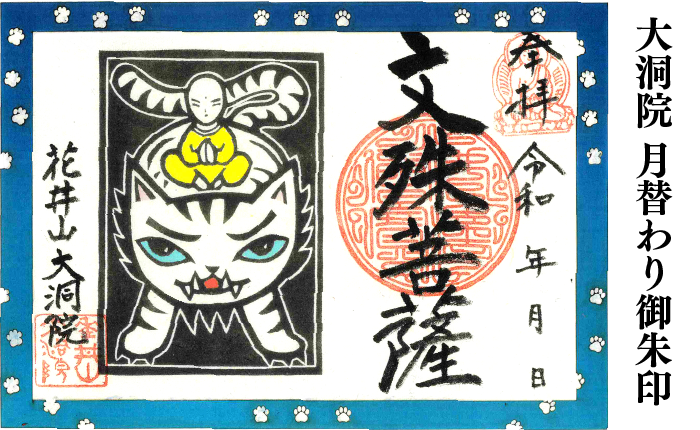 大洞院 月替わり御朱印
奉拝
令和 年 月 日
文殊菩薩
花井山 大洞院